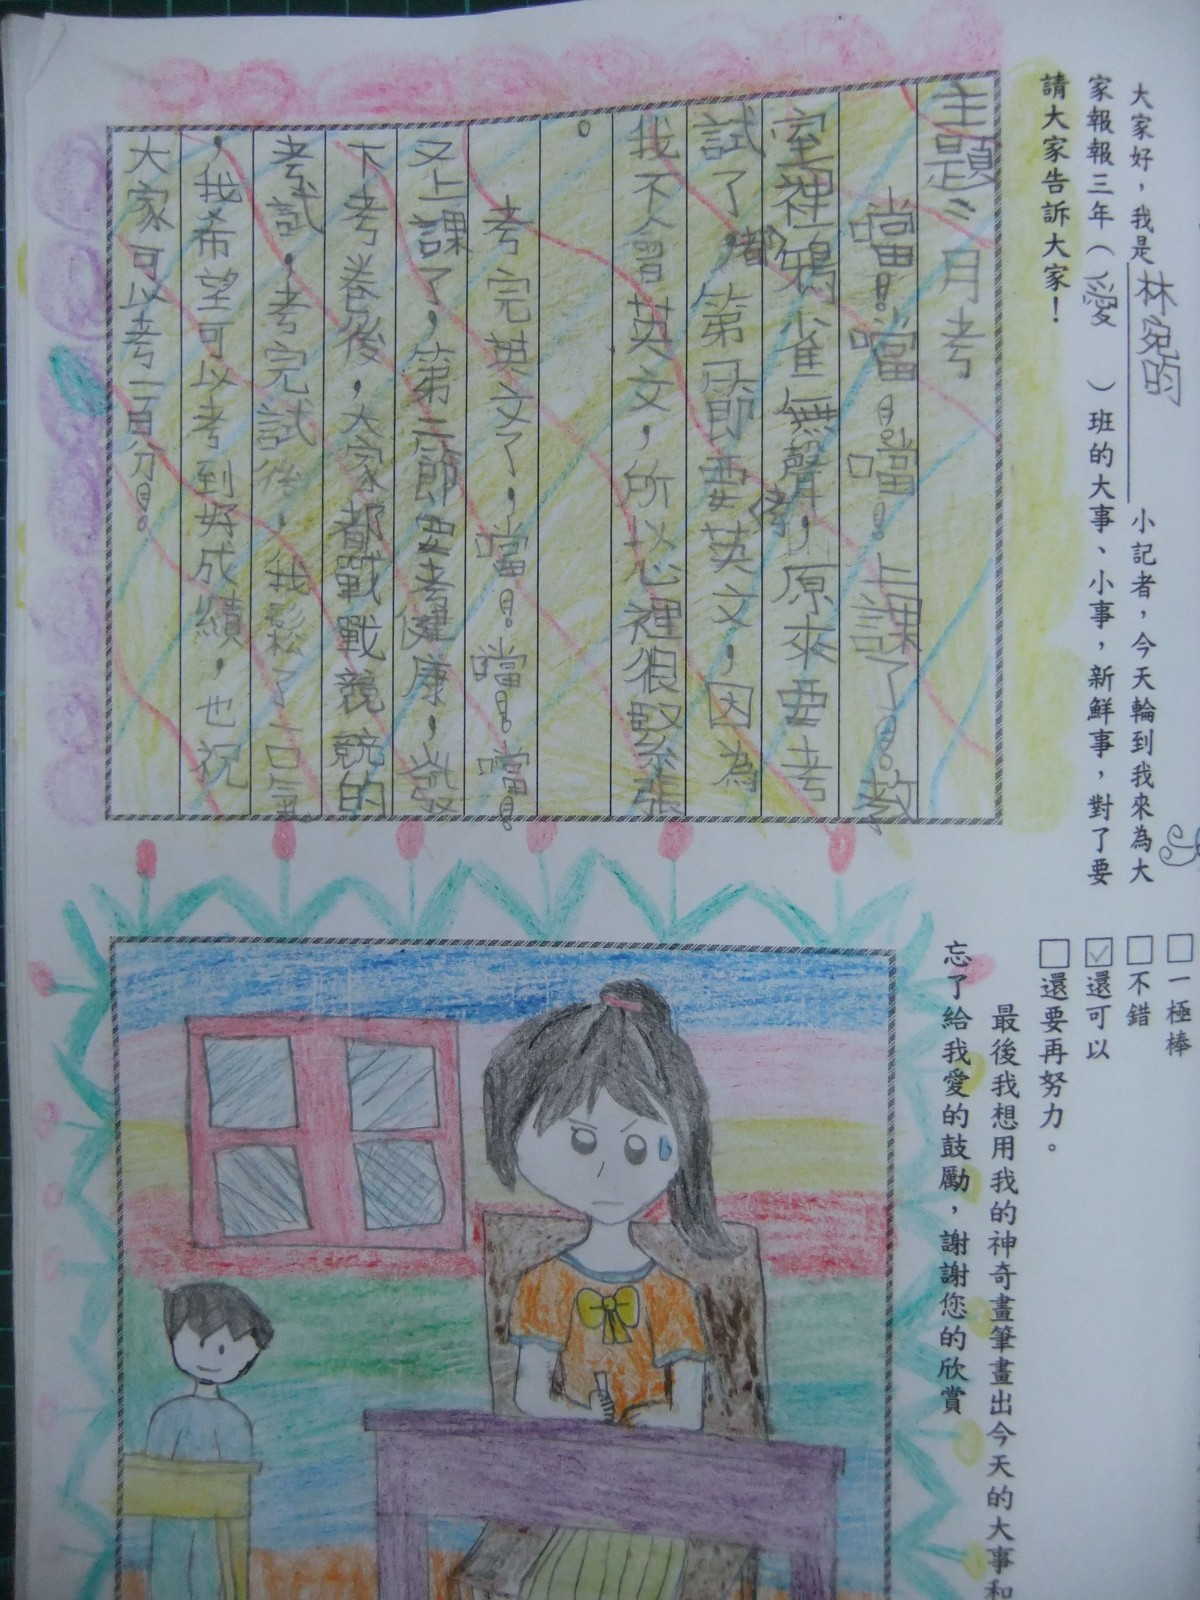 大家好，我是林宛昀小記者，今天輪到我來為大
家報報三年（愛）班的大事、小事，新鮮事，對了要
請大家告訴大家！
主題：月考
噹！噹！噹！上課了！教
室裡鴉雀無聲，原來要考
試了，第一節要考英文，因為
我不會英文，所以心裡很緊張
。
考完英文了，噹！噹！噹！
又上課了，第二節要考健康，發
下考卷後，大家都戰戰競競的
考試，考完試後，我鬆了一口氣
，我希望可以考到好成績，也祝
大家可以考一百分！。
□一極棒
□不錯
☑還可以
□還要再努力。
最後我想用我的神奇畫筆畫出今天的大事和
忘了給我愛的鼓勵，謝謝您的欣賞